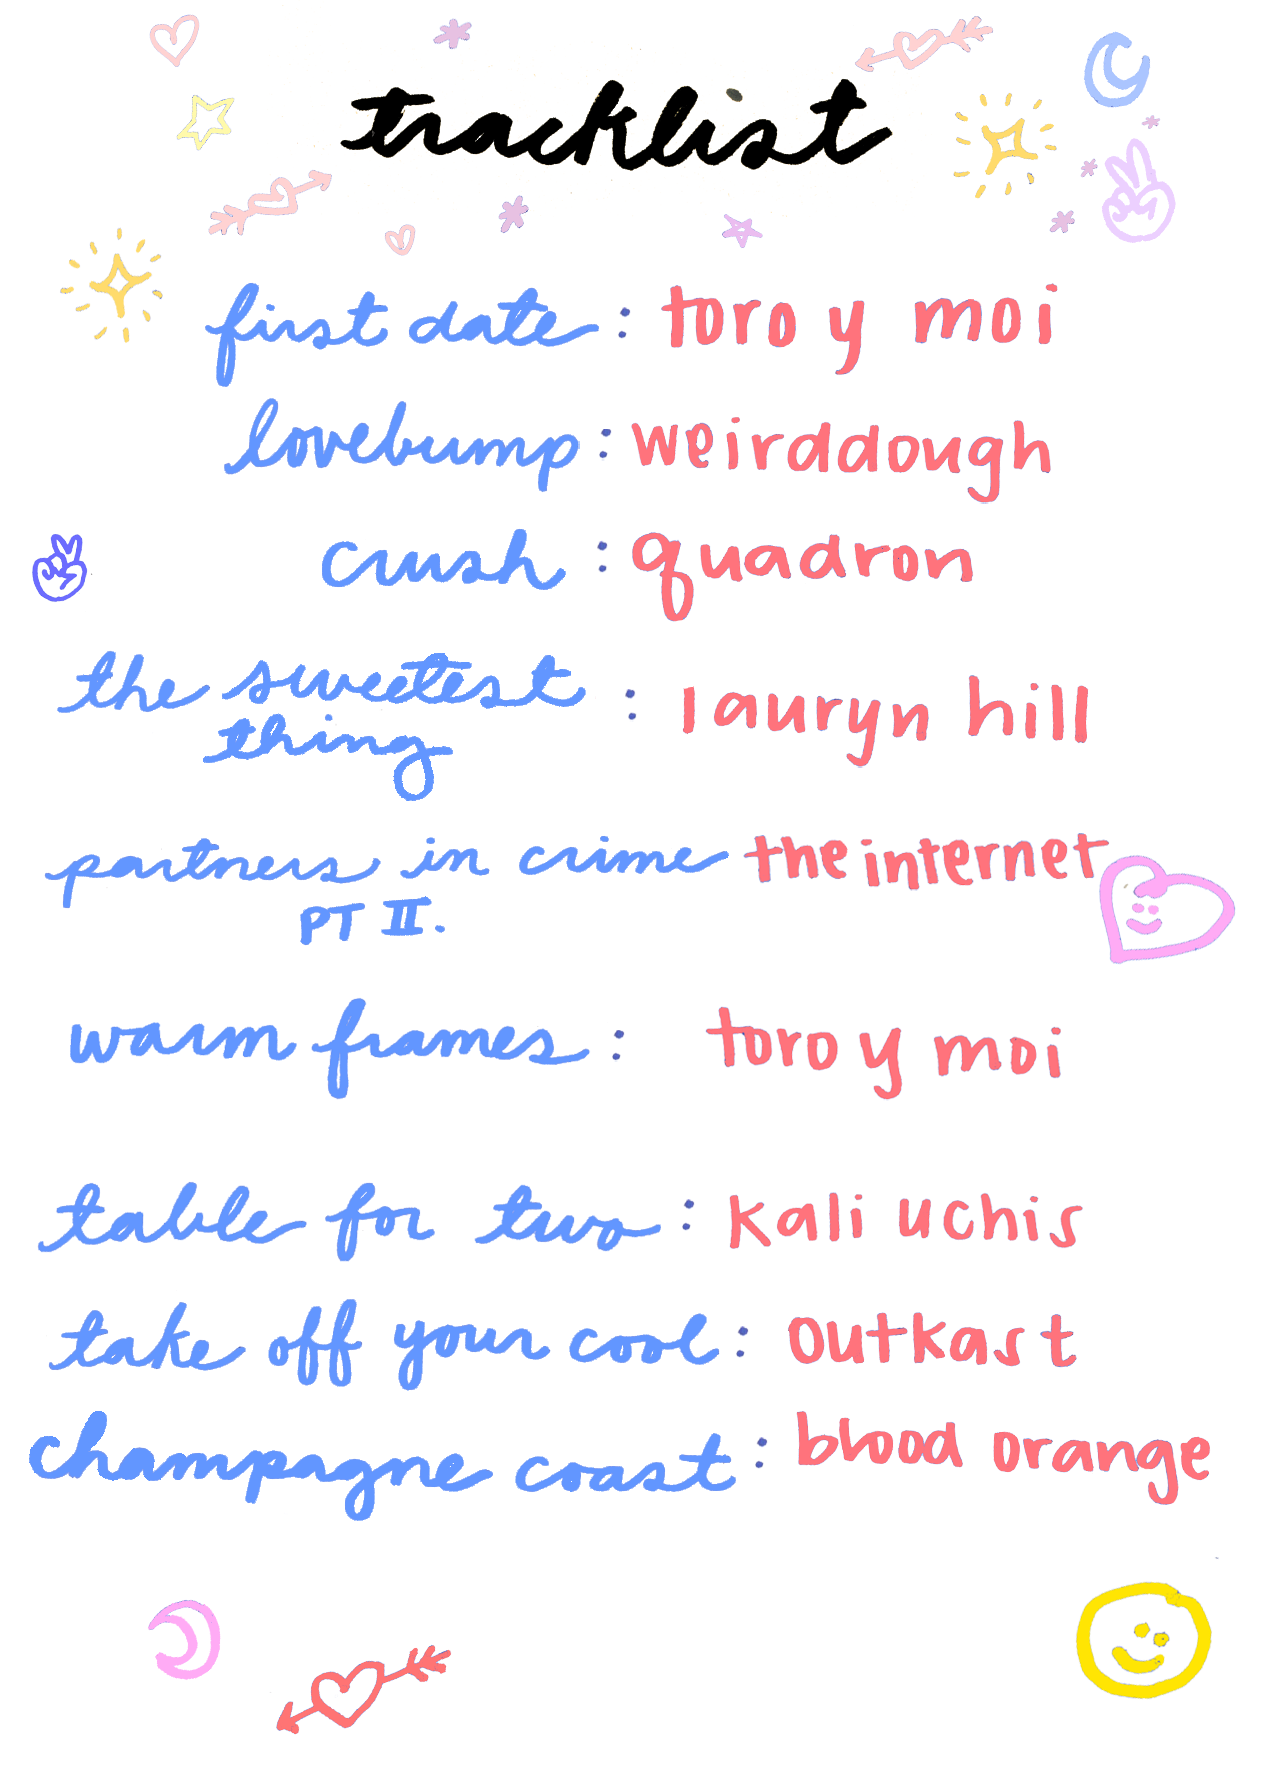 tracklist
first date : toro y moi
lovebump : weirddough
crush : quadron
the sweetest : lauryn hill
thing
partners in crime the internet
PT II.
warm frames : toro y moi
table for two : kali uchis
take off your cool : outkast
champagne coast : blood orange